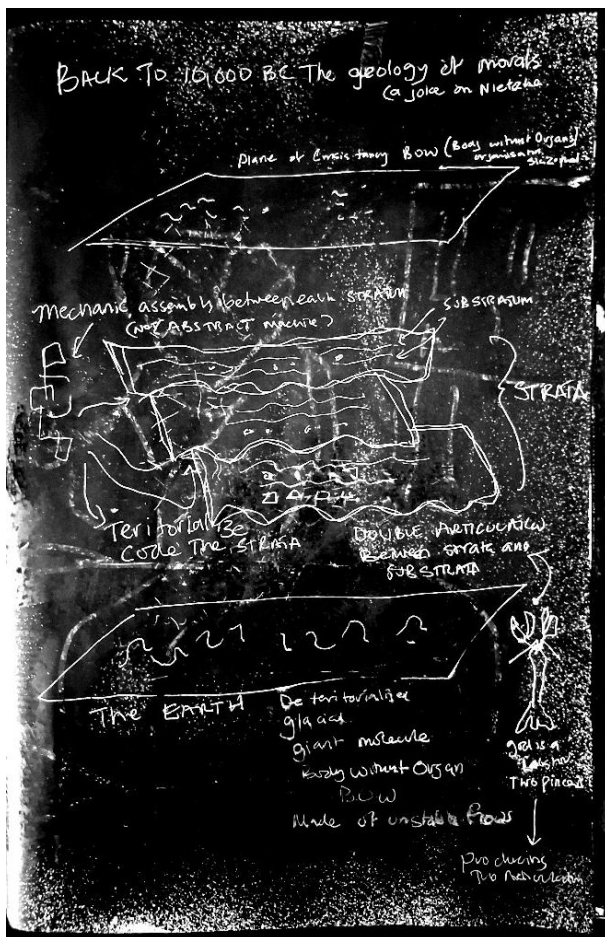 BACK TO 10,000 BC The geology of morals
(a joke on Nietzhe
Plane of Consistancy BOW (Body without Organs)
organisam
Mechanic assembly between each STRATUM
(NOT ABSTRACT machine)
SUBSTRATUM
STRATA
Teritorialize
Code The STRATA
DOUBLE ARTICULATION
Between strata and
SUBSTRATA
The EARTH
Deteritorialized
glacial
giant molecule
Body without Organ
BOW
Made of unstable flows
god is a
Lobster
Two pincers
producing